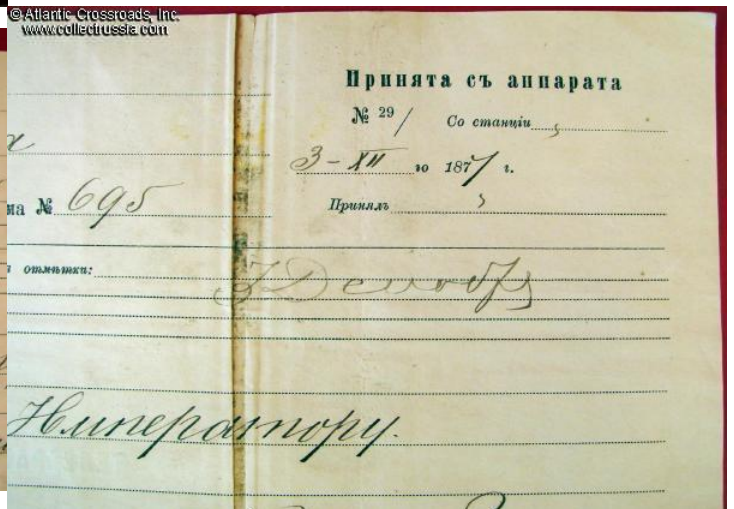 © Atlantic Crossroads, Inc.
www.collectrussia.com
Принята съ аппарата
№ 29/ Со станціи
3-XII го 1877 г.
ма № 695
Принялъ
отмѣтки:
Императору.